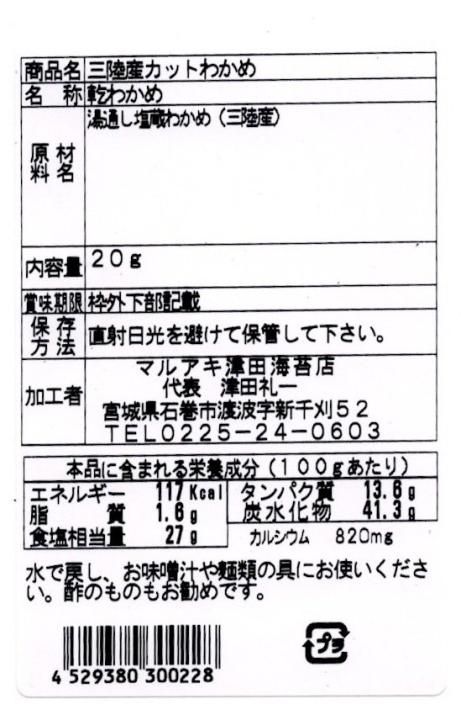 商品名 三陸産カットわかめ
名 称 乾わかめ
原材料名 湯通し塩蔵わかめ（三陸産）
内容量 20g
賞味期限 枠外下部記載
保存方法 直射日光を避けて保管して下さい。
加工者 マルアキ津田海苔店
代表 津田礼一
宮城県石巻市渡波字新千刈52
TEL0225-24-0603
本品に含まれる栄養成分（100gあたり）
エネルギー 117Kcal タンパク質 13.6g
脂 質 1.6g 炭水化物 41.3g
食塩相当量 27g カルシウム 820mg
水で戻し、お味噌汁や麺類の具にお使いくださ
い。酢のものもお勧めです。
4 529380 300228
プラ